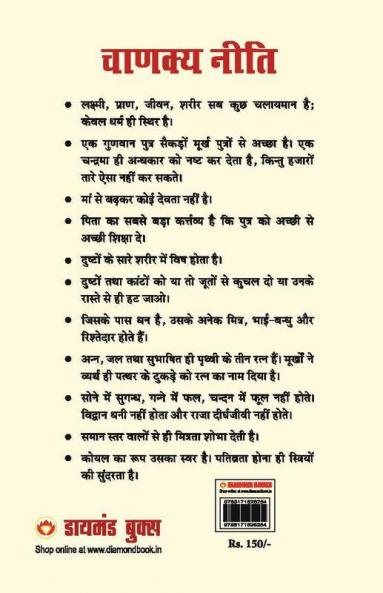 चाणक्य नीति
• लक्ष्मी, प्राण, जीवन, शरीर सब कुछ चलायमान है;
केवल धर्म ही स्थिर है।
• एक गुणवान पुत्र सैकड़ों मूर्ख पुत्रों से अच्छा है। एक
चन्द्रमा ही अन्धकार को नष्ट कर देता है, किन्तु हजारों
तारे ऐसा नहीं कर सकते।
• मां से बढ़कर कोई देवता नहीं है।
• पिता का सबसे बड़ा कर्त्तव्य है कि पुत्र को अच्छी से
अच्छी शिक्षा दे।
• दुष्टों के सारे शरीर में विष होता है।
• दुष्टों तथा कांटों को या तो जूतों से कुचल दो या उनके
रास्ते से ही हट जाओ।
• जिसके पास धन है, उसके अनेक मित्र, भाई-बन्धु और
रिश्तेदार होते हैं।
• अन्न, जल तथा सुभाषित ही पृथ्वी के तीन रत्न हैं। मूर्खों ने
व्यर्थ ही पत्थर के टुकड़े को रत्न का नाम दिया है।
• सोने में सुगन्ध, गन्ने में फल, चन्दन में फूल नहीं होते।
विद्वान धनी नहीं होता और राजा दीर्घजीवी नहीं होते।
• समान स्तर वालों से ही मित्रता शोभा देती है।
• कोयल का रूप उसका स्वर है। पतिव्रता होना ही स्त्रियों
की सुंदरता है।
डायमंड बुक्स
Shop online at www.diamondbook.in
DIAMOND BOOKS
Rs. 150/-